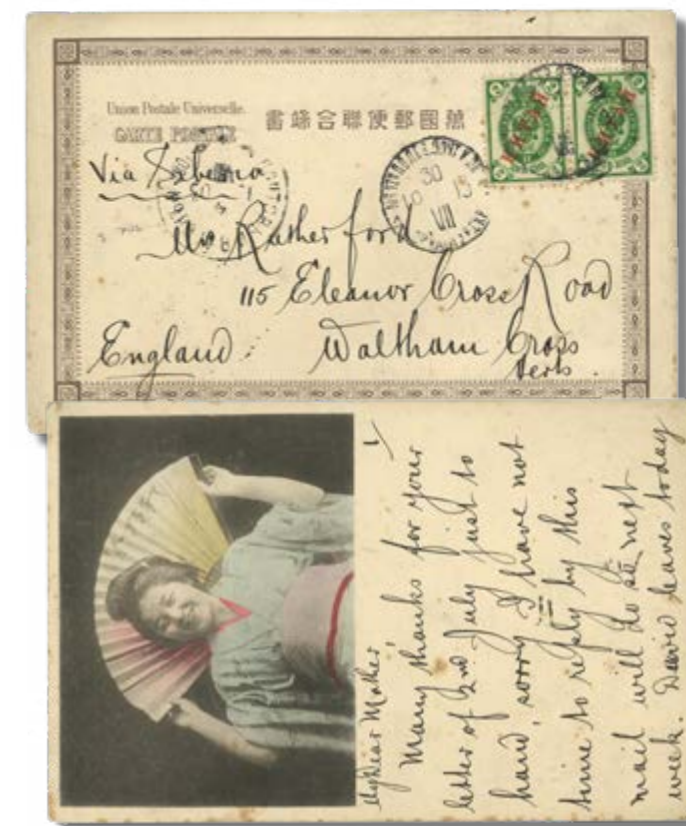 Union Postale Universelle.
CARTE POSTALE
萬國郵便聯合端書
КИТАЙ
КИТАЙ
30
10 15
VII
Via Siberia
Mr Rutherford
115 Eleanor Cross Road
Waltham Cross
Herts.
England.
My Dear Mother,
Many thanks for your
letter of 2nd July just to
hand, sorry I have not
time to reply by this
mail will do so next
week. David leaves today